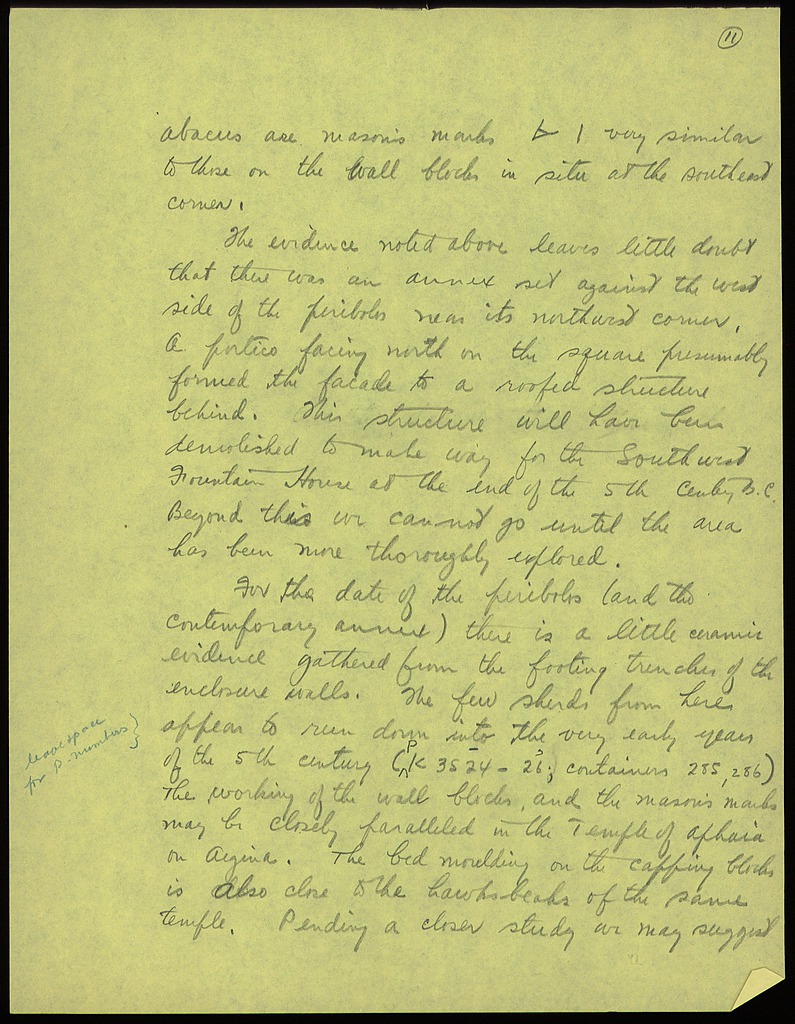 11
abacus are mason's marks ⊳ | very similar
to those on the wall blocks in situ at the southeast
corner.
The evidence noted above leaves little doubt
that there was an annex set against the west
side of the peribolos near its northwest corner.
A portico facing north on the square presumably
formed the facade to a roofed structure
behind. This structure will have been
demolished to make way for the Southwest
Fountain House at the end of the 5th century B.C.
Beyond this we cannot go until the area
has been more thoroughly explored.
For the date of the peribolos (and the
contemporary annex) there is a little ceramic
evidence gathered from the footing trenches of the
enclosure walls. The few sherds from here
appear to run down into the very early years
leave space
for P-numbers}
of the 5th century (P K 3524 - 26; containers 285, 286)
The working of the wall blocks, and the mason's marks
may be closely paralleled in the Temple of Aphaia
on Aegina. The bed moulding on the capping blocks
is also close to the hawksbeaks of the same
temple. Pending a closer study we may suggest